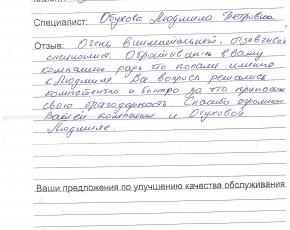 Специалист: Обухова Людмила Петровна
Отзыв: Очень внимательный, отзывчивый
специалист. Обратившись в Вашу
компанию рады что попали именно
к Людмиле. Все вопросы решались
компетентно и быстро за что приносим
свою благодарность. Спасибо огромное
Вашей компании и Обуховой
Людмиле.
Ваши предложения по улучшению качества обслуживания